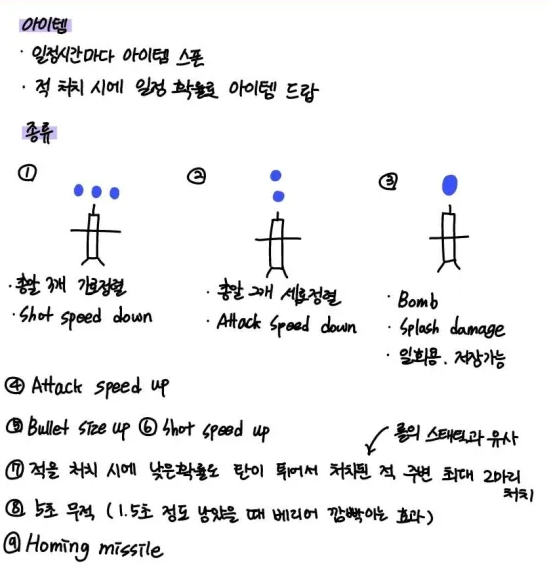 아이템
· 일정시간마다 아이템 스폰
· 적 처치 시에 일정 확률로 아이템 드랍
종류
① ② ③
· 총알 3개 가로정렬
· Shot speed down
· 총알 2개 세로정렬
· Attack speed down
· Bomb
· Splash damage
· 일회용. 저장가능
④ Attack speed up
⑤ Bullet size up ⑥ Shot speed up
롤의 스태틱과 유사
⑦ 적을 처치 시에 낮은확률로 탄이 튀어서 처치된 적 주변 최대 2마리
처치
⑧ 5초 무적 (1.5초 정도 남았을 때 베리어 깜빡이는 효과)
⑨ Homing missile